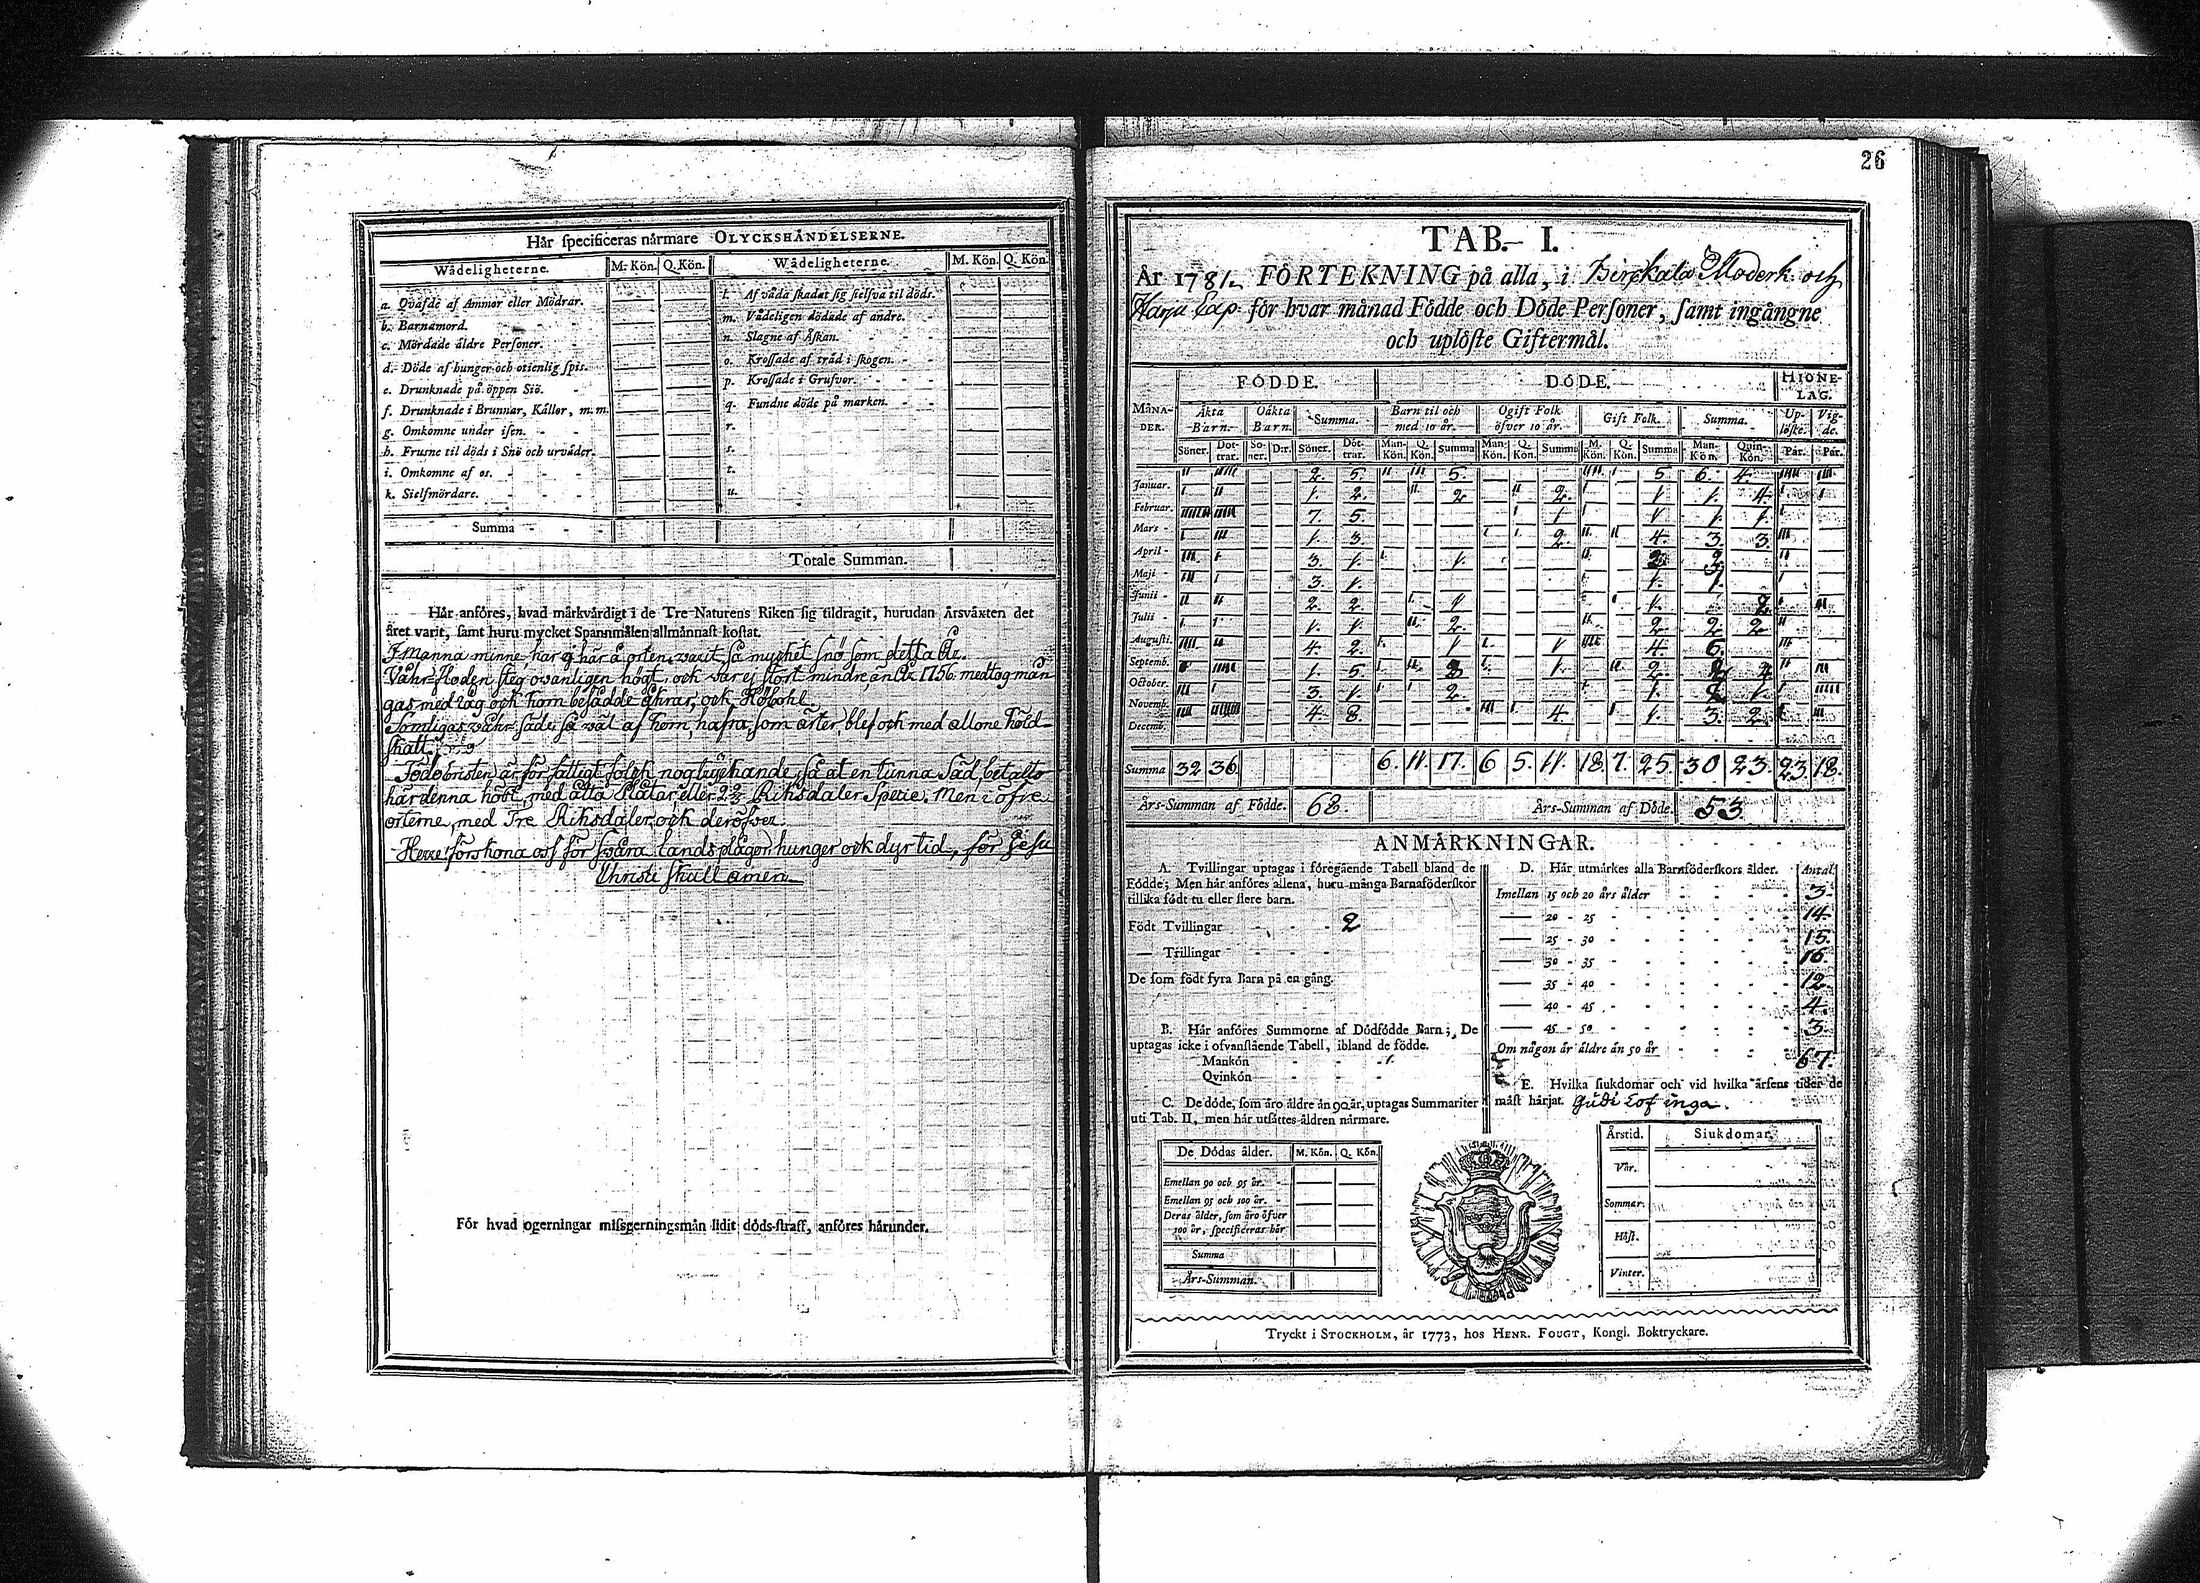 Här specificeras närmare OLYCKSHÄNDELSERNE.
Wådeligheterne. M. Kön. Q. Kön. Wådeligheterne. M. Kön. Q. Kön.
a. Qväfde af Ammor eller Mödrar.
b. Barnamord.
c. Mördade äldre Personer.
d. Döde af hunger och otienlig spis.
e. Drunknade på öppen Siö.
f. Drunknade i Brunnar, Källor, m.m.
g. Omkomne under isen.
h. Frusne til döds i Snö och urväder.
i. Omkomne af os.
k. Sielfmördare.
l. Af våda skadat sig sielfva til döds.
m. Vådeligen dödade af andre.
n. Slagne af Åskan.
o. Krossade af träd i skogen.
p. Krossade i Grufvor.
q. Fundne döde på marken.
r.
s.
t.
u.
Summa
Totale Summan.
Här anföres, hvad märkvärdigt i de Tre Naturens Riken sig tildragit, hurudan Årsväxten det
året varit, samt huru mycket Spannmålen allmännast kostat.
I Manna minne har ej här å orten varit så mycket snö som detta År.
Våhr-floden steg ovanligen högt, och var ej stort mindre än År 1756. medtog mån
gas med råg och korn besådde åkrar, och Höbohl.
Somligas våhr-säde, så väl af korn, hafra, som ärter, blef ock med allone köld-
skatt.
Födobristen är för fattigt folck nog tryckande, så at en tunna Säd, betaltes
här denna höst, med åtta Plåtar, eller 2 2/3 Riksdaler Specie, Men i öfre
orterne, med Tre Riksdaler, och deröfver.
Herre! förskona oss för svåra landsplågor, hunger ock dyr tid, för Jesu
Christi skull amen.
För hvad ogerningar missgerningsmän lidit döds-straff, anföres härunder.
26
TAB. I.
År 1781. FÖRTEKNING på alla, i Birkala Moderk. och
Harju Cap. för hvar månad Födde och Döde Personer, samt ingångne
och uplöste Giftermål.
FÖDDE. DÖDE. HIONELAG.
MÅNADER. Äkta Barn. Oäkta Barn. Summa. Barn til och med 10 år. Ogift Folk öfver 10 år. Gift Folk. Summa. Uplöste. Vigde.
Söner. Dottrar. Soner. D:r. Söner. Döttrar. Man-Kön. Q. Kön. Summa Man-Kön. Q. Kön. Summa M. Kön. Q. Kön. Summa Man-Kön. Quin-Kön. Pår. Pår.
Januar. 2. 5. 5. 5 6. 4.
Februar. 1. 2. 2 2. 1 1. 4.
Mars 7. 5. 1 1 1. 1.
April 1. 3. 2. 4. 3. 3.
Maji 3. 1. 1.
Junii 3. 1. 1. 1.
Julii 2. 2. 1 1. 2
Augusti. 1. 1. 2. 2 2 2
Septemb. 4. 2. 1 1 4. 6.
October. 1. 5. 1. 2.
Novemb. 3. 1. 2. 1. 1.
Decemb. 4. 8. 4. 1. 3. 2.
Summa 32 36 6. 11. 17. 6 5. 11. 18. 7. 25. 30 23. 23. 18.
Års-Summan af Födde. 68. Års-Summan af Döde. 53.
ANMÄRKNINGAR.
A. Tvillingar uptagas i föregående Tabell bland de
Födde; Men här anföres allena, huru många Barnaföderskor
tillika födt tu eller flere barn.
Födt Tvillingar 2
— Trillingar
De som födt fyra Barn på en gång.
B. Här anföres Summorne af Dödfödde Barn; De
uptagas icke i ofvanstående Tabell, ibland de födde.
Mankön 1.
Qvinkön
C. De döde, som äro äldre än 90 år, uptagas Summariter
uti Tab. II, men här utsättes åldren närmare.
De Dödas ålder. M. Kön. Q. Kön.
Emellan 90 och 95 år.
Emellan 95 och 100 år.
Deras ålder, som äro öfver
100 år, specificeras här
Summa
Års-Summan.
D. Här utmärkes alla Barnföderskors ålder. Antal.
Imellan 15 och 20 års ålder 3.
— 20 - 25 14.
— 25 - 30 15.
— 30 - 35 16.
— 35 - 40 12.
— 40 - 45 4.
— 45 - 50 3.
Om någon är äldre än 50 år
67.
E. Hvilka siukdomar och vid hvilka årsens tider de
mäst härjat. Gudi Lof inga.
Årstid. Siukdomar.
Vår.
Sommar.
Höst.
Vinter.
Tryckt i STOCKHOLM, år 1773, hos HENR. FOUGT, Kongl. Boktryckare.